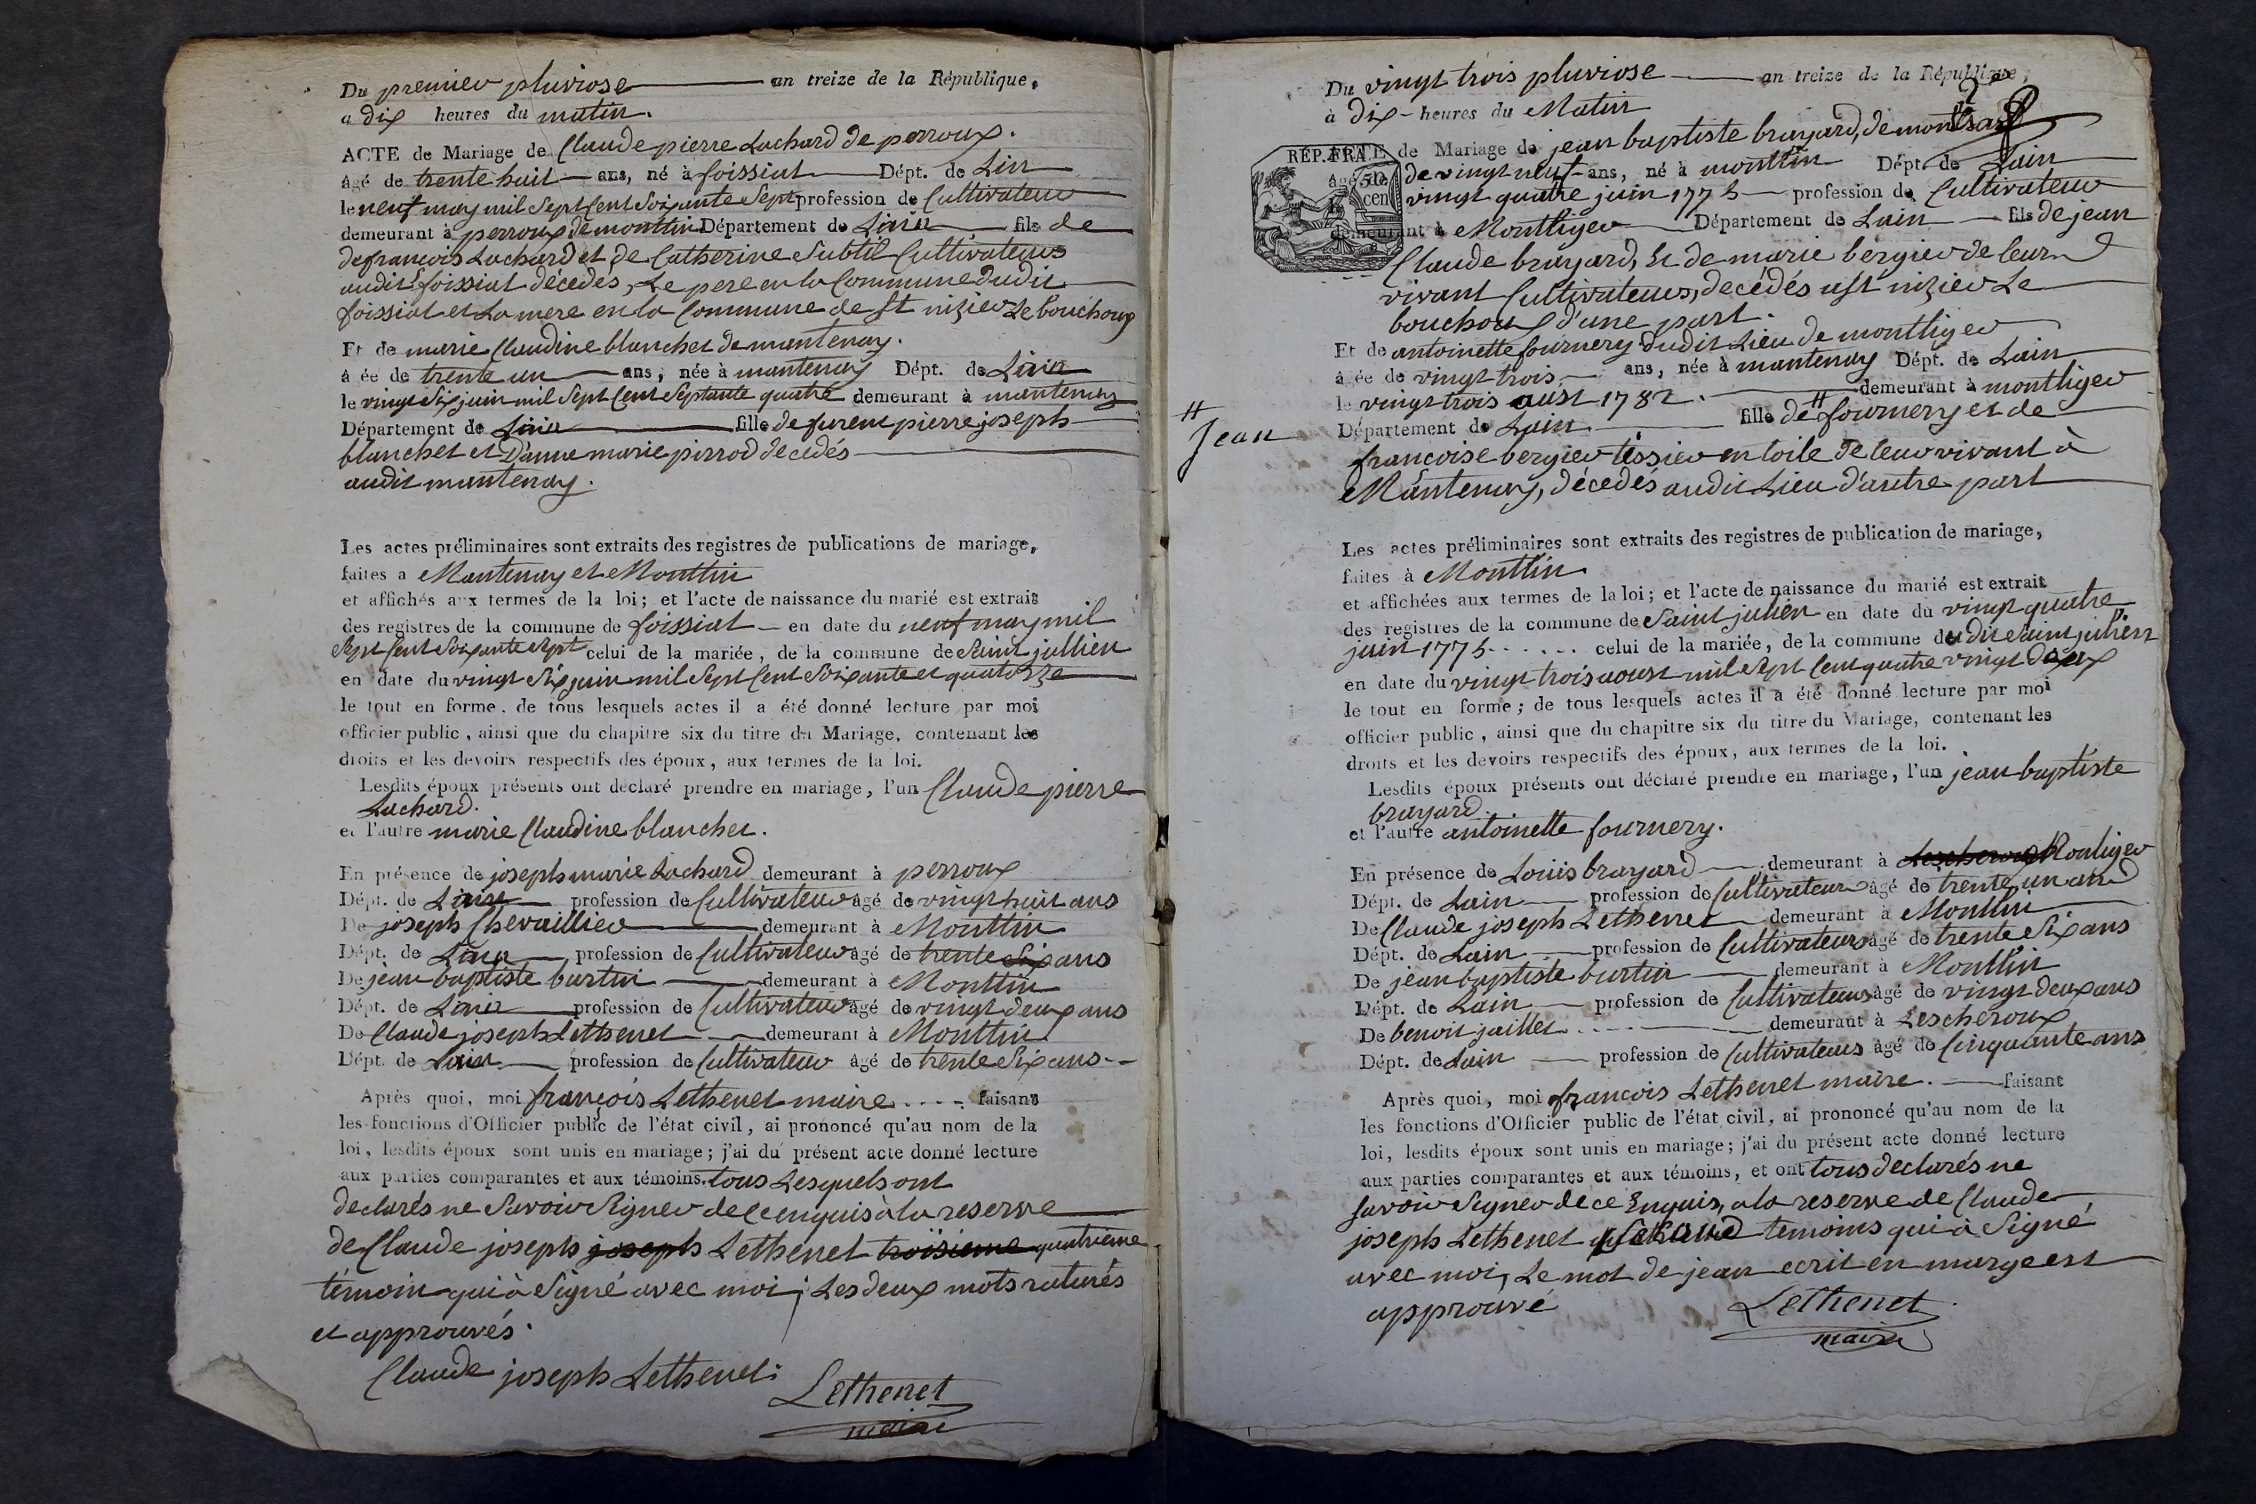 Du premier pluviose an treize de la République,
a dix heures du matin.
ACTE de Mariage de Claude pierre Lachard de perroux.
âgé de trente huit ans, né à foissiat Dépt. de Lin
le neuf may mil Sept Cent Soixante Sept profession de Cultivateur
demeurant à perroux de montlin Département de Lain fils de
de françois Lachard et de Catherine Subtil Cultivateurs
audit foissiat décedés, Le pere en la Commune dudit
foissiat et La mere en la Commune de St nizier Le bouchoux
Et de marie Claudine blanchet de mantenay.
âgée de trente un ans, née à mantenay Dépt. de Lain
le vingt Six juin mil Sept Cent Septante quatre demeurant à mantenay
Département de Lain fille de furent pierre joseph
blanchet et D'anne marie pirrod decedés
audit mantenay.
Les actes préliminaires sont extraits des registres de publications de mariage,
faites a Mantenay et Montlin
et affichés aux termes de la loi; et l'acte de naissance du marié est extrait
des registres de la commune de foissiat en date du neuf may mil
Sept Cent Soixante Sept celui de la mariée, de la commune de Saint jullien
en date du vingt Six juin mil Sept Cent Soixante et quatorze
le tout en forme, de tous lesquels actes il a été donné lecture par moi
officier public, ainsi que du chapitre six du titre du Mariage, contenant les
droits et les devoirs respectifs des époux, aux termes de la loi.
Lesdits époux présents ont déclaré prendre en mariage, l'un Claude pierre
Lachard.
et l'autre marie Claudine blanchet.
En présence de joseph marie Lachard demeurant à perroux
Dépt. de Lain profession de Cultivateur âgé de vingt huit ans
De joseph Chevaillier demeurant à Montlin
Dépt. de Lain profession de Cultivateur âgé de trente Six ans
De jean baptiste burtin demeurant à Montlin
Dépt. de Lain profession de Cultivateur âgé de vingt deux ans
De Claude joseph Lethenet demeurant à Montlin
Dépt. de Lain profession de Cultivateur âgé de trente Six ans
Après quoi, moi françois Lethenet maire .... faisant
les fonctions d'Officier public de l'état civil, ai prononcé qu'au nom de la
loi, lesdits époux sont unis en mariage; j'ai du présent acte donné lecture
aux parties comparantes et aux témoins. tous Lesquels ont
declarés ne Savoir Signer de ce enquis à la reserve
de Claude joseph joseph Lethenet troisieme quatrieme
témoin qui à Signé avec moi; Les deux mots raturés
et approuvés.
Claude joseph Lethenet
Lethenet
maire
Du vingt trois pluviose an treize de la République,
à Dix heures du Matin
REP. FRA.
50
cen
ACTE de Mariage de jean baptiste brayard, de
âgé de de vingt neuf ans, né à montlin Dépt. de Lain
vingt quatre juin 1775 profession de Cultivateur
demeurant à Montliger Département de Lain fils de jean
Claude brayard, Et de marie bergier de leur
vivant Cultivateurs, decédés a St nizier Le
bouchoux d'une part.
Et de antoinette fournery dudit Lieu de montliger
âgée de vingt trois ans, née à mantenay Dépt. de Lain
le vingt trois aust 1782. demeurant à montliger
Département de Lain fille de # fournery et de
# Jean
françoise bergier tissier en toile De leur vivant à
Mantenay, décedés audit Lieu d'autre part
Les actes préliminaires sont extraits des registres de publication de mariage,
faites à Montlin
et affichées aux termes de la loi; et l'acte de naissance du marié est extrait
des registres de la commune de Saint julien en date du vingt quatre
juin 1775 ...... celui de la mariée, de la commune dudit Saint julien
en date du vingt trois aoust mil Sept Cent quatre vingt deux
le tout en forme; de tous lesquels actes il a été donné lecture par moi
officier public, ainsi que du chapitre six du titre du Mariage, contenant les
droits et les devoirs respectifs des époux, aux termes de la loi.
Lesdits époux présents ont déclaré prendre en mariage, l'un jean baptiste
brayard.
et l'autre antoinette fournery.
En présence de Louis brayard demeurant à Montliger
Dépt. de Lain profession de Cultivateur âgé de trente un ans
De Claude joseph Lethenet demeurant à Montlin
Dépt. de Lain profession de Cultivateurs âgé de trente Six ans
De jean baptiste burtin demeurant à Montlin
Dépt. de Lain profession de Cultivateurs âgé de vingt Deux ans
De benoit jaillet demeurant à Lescheroux
Dépt. de Lain profession de Cultivateurs âgé de Cinquante ans
Après quoi, moi françois Lethenet maire. faisant
les fonctions d'Officier public de l'état civil, ai prononcé qu'au nom de la
loi, lesdits époux sont unis en mariage; j'ai du présent acte donné lecture
aux parties comparantes et aux témoins, et ont tous declarés ne
savoir Signer de ce Enquis, a la reserve de Claude
joseph Lethenet temoins qui à Signé
avec moi, Le mot de jean ecrit en marge est
approuvé
Lethenet
maire